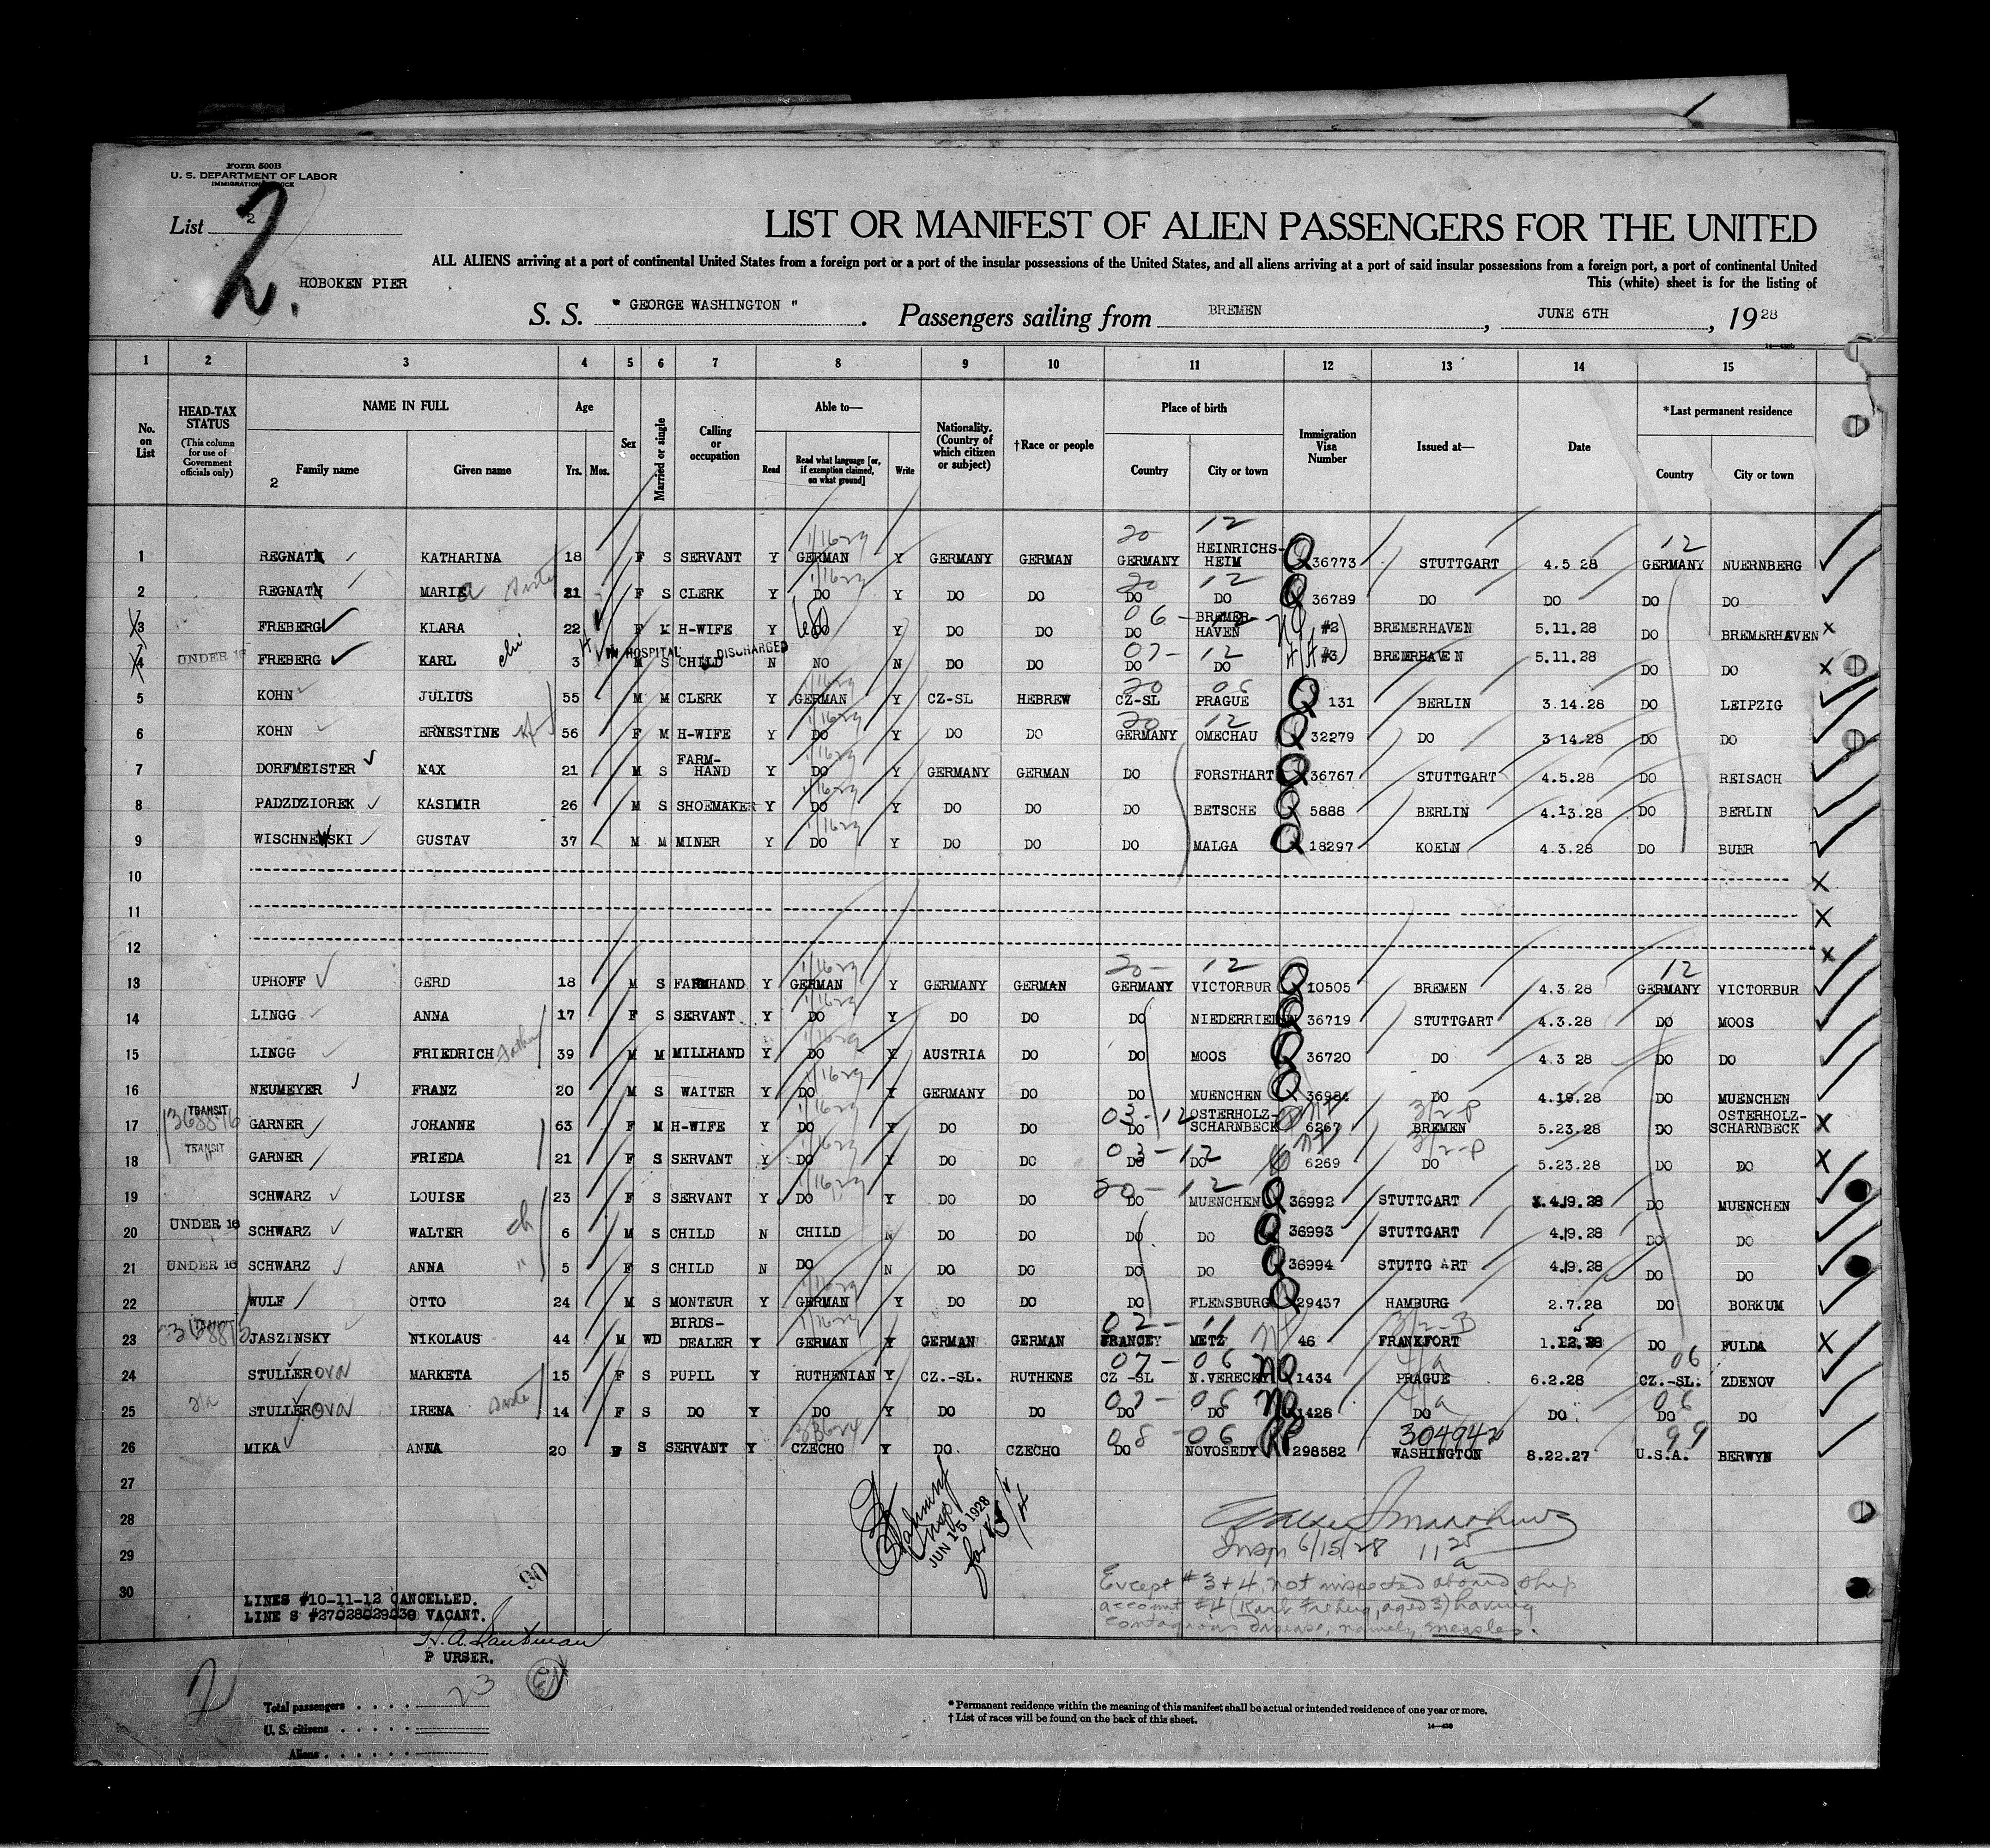 Form 500B
U. S. DEPARTMENT OF LABOR
IMMIGRATION
List 2
2.
HOBOKEN PIER
LIST OR MANIFEST OF ALIEN PASSENGERS FOR THE UNITED
ALL ALIENS arriving at a port of continental United States from a foreign port or a port of the insular possessions of the United States, and all aliens arriving at a port of said insular possessions from a foreign port, a port of continental United
This (white) sheet is for the listing of
S. S. " GEORGE WASHINGTON ". Passengers sailing from BREMEN, JUNE 6TH, 1928
1 2 3 4 5 6 7 8 9 10 11 12 13 14 15
No. on List
HEAD-TAX STATUS (This column for use of Government officials only)
NAME IN FULL
Family name
2
Given name
Age
Yrs. Mos.
Sex
Married or single
Calling or occupation
Able to—
Read
Read what language [or, if exemption claimed, on what ground]
Write
Nationality. (Country of which citizen or subject)
†Race or people
Place of birth
Country
City or town
Immigration Visa Number
Issued at—
Date
*Last permanent residence
Country
City or town
20 12 12
1 REGNATH KATHARINA 18 F S SERVANT Y GERMAN Y GERMANY GERMAN GERMANY HEINRICHS-HEIM Q 36773 STUTTGART 4.5.28 GERMANY NUERNBERG
2 REGNATH MARIA 21 F S CLERK Y DO Y DO DO DO DO Q 36789 DO DO DO DO
3 FREBERG KLARA 22 F M H-WIFE Y DO Y DO DO DO BREMER-HAVEN #2 BREMERHAVEN 5.11.28 DO BREMERHAVEN X
IN HOSPITAL DISCHARGED
4 UNDER 16 FREBERG KARL 3 M S CHILD N NO N DO DO DO DO #3 BREMERHAVEN 5.11.28 DO DO X
5 KOHN JULIUS 55 M M CLERK Y GERMAN Y CZ-SL HEBREW CZ-SL PRAGUE Q 131 BERLIN 3.14.28 DO LEIPZIG
6 KOHN ERNESTINE 56 F M H-WIFE Y DO Y DO DO GERMANY OMECHAU Q 32279 DO 3 14.28 DO DO
7 DORFMEISTER MAX 21 M S FARM-HAND Y DO Y GERMANY GERMAN DO FORSTHART Q 36767 STUTTGART 4.5.28 DO REISACH
8 PADZDZIOREK KASIMIR 26 M S SHOEMAKER Y DO Y DO DO DO BETSCHE Q 5888 BERLIN 4.13.28 DO BERLIN
9 WISCHNEWSKI GUSTAV 37 M M MINER Y DO Y DO DO DO MALGA Q 18297 KOELN 4.3.28 DO BUER
10 X
11 X
12 X
20- 12 12
13 UPHOFF GERD 18 M S FARMHAND Y GERMAN Y GERMANY GERMAN GERMANY VICTORBUR Q 10505 BREMEN 4.3.28 GERMANY VICTORBUR
14 LINGG ANNA 17 F S SERVANT Y DO Y DO DO DO NIEDERRIEDEN Q 36719 STUTTGART 4.3.28 DO MOOS
15 LINGG FRIEDRICH 39 M M MILLHAND Y DO Y AUSTRIA DO DO MOOS Q 36720 DO 4.3 28 DO DO
16 NEUMEYER FRANZ 20 M S WAITER Y DO Y GERMANY DO DO MUENCHEN Q 36984 DO 4.19.28 DO MUENCHEN
17 TRANSIT GARNER JOHANNE 63 F M H-WIFE Y DO Y DO DO DO OSTERHOLZ-SCHARNBECK 6267 BREMEN 5.23.28 DO OSTERHOLZ-SCHARNBECK X
18 TRANSIT GARNER FRIEDA 21 F S SERVANT Y DO Y DO DO DO DO 6269 DO 5.23.28 DO DO X
19 SCHWARZ LOUISE 23 F S SERVANT Y DO Y DO DO DO MUENCHEN Q 36992 STUTTGART 4.19.28 DO MUENCHEN
20 UNDER 16 SCHWARZ WALTER ch 6 M S CHILD N CHILD N DO DO DO DO Q 36993 STUTTGART 4.19.28 DO DO
21 UNDER 16 SCHWARZ ANNA " 5 F S CHILD N DO N DO DO DO DO Q 36994 STUTTG ART 4.19.28 DO DO
22 WULF OTTO 24 M S MONTEUR Y GERMAN Y DO DO DO FLENSBURG Q 29437 HAMBURG 2.7.28 DO BORKUM
23 JASZINSKY NIKOLAUS 44 M WD BIRDS-DEALER Y GERMAN Y GERMAN GERMAN FRANCE METZ 46 FRANKFORT DO FULDA X
24 STULLEROVA MARKETA 15 F S PUPIL Y RUTHENIAN Y CZ.-SL. RUTHENE CZ -SL N.VERECKY NQ 1434 PRAGUE 6.2.28 CZ.-SL. ZDENOV
25 STULLEROVA IRENA 14 F S DO Y DO Y DO DO DO DO NQ 1428 DO DO DO DO
26 MIKA ANNA 20 F S SERVANT Y CZECHO Y DO. CZECHO DO NOVOSEDY RP 298582 WASHINGTON 8.22.27 U.S.A. BERWYN
27
28
29
30
JUN 15 1928
Insp 6/15/28 11 25 a
Except #3 + 4, not inspected aboard ship
account #4 (Karl Freberg, aged 3) having
contagious disease, namely, measles.
90
LINES #10-11-12 CANCELLED.
LINE S #27028029030 VACANT.
P URSER.
2
Total passengers . . . . 23
U. S. citizens . . . . .
Aliens . . . . . .
* Permanent residence within the meaning of this manifest shall be actual or intended residence of one year or more.
† List of races will be found on the back of this sheet.